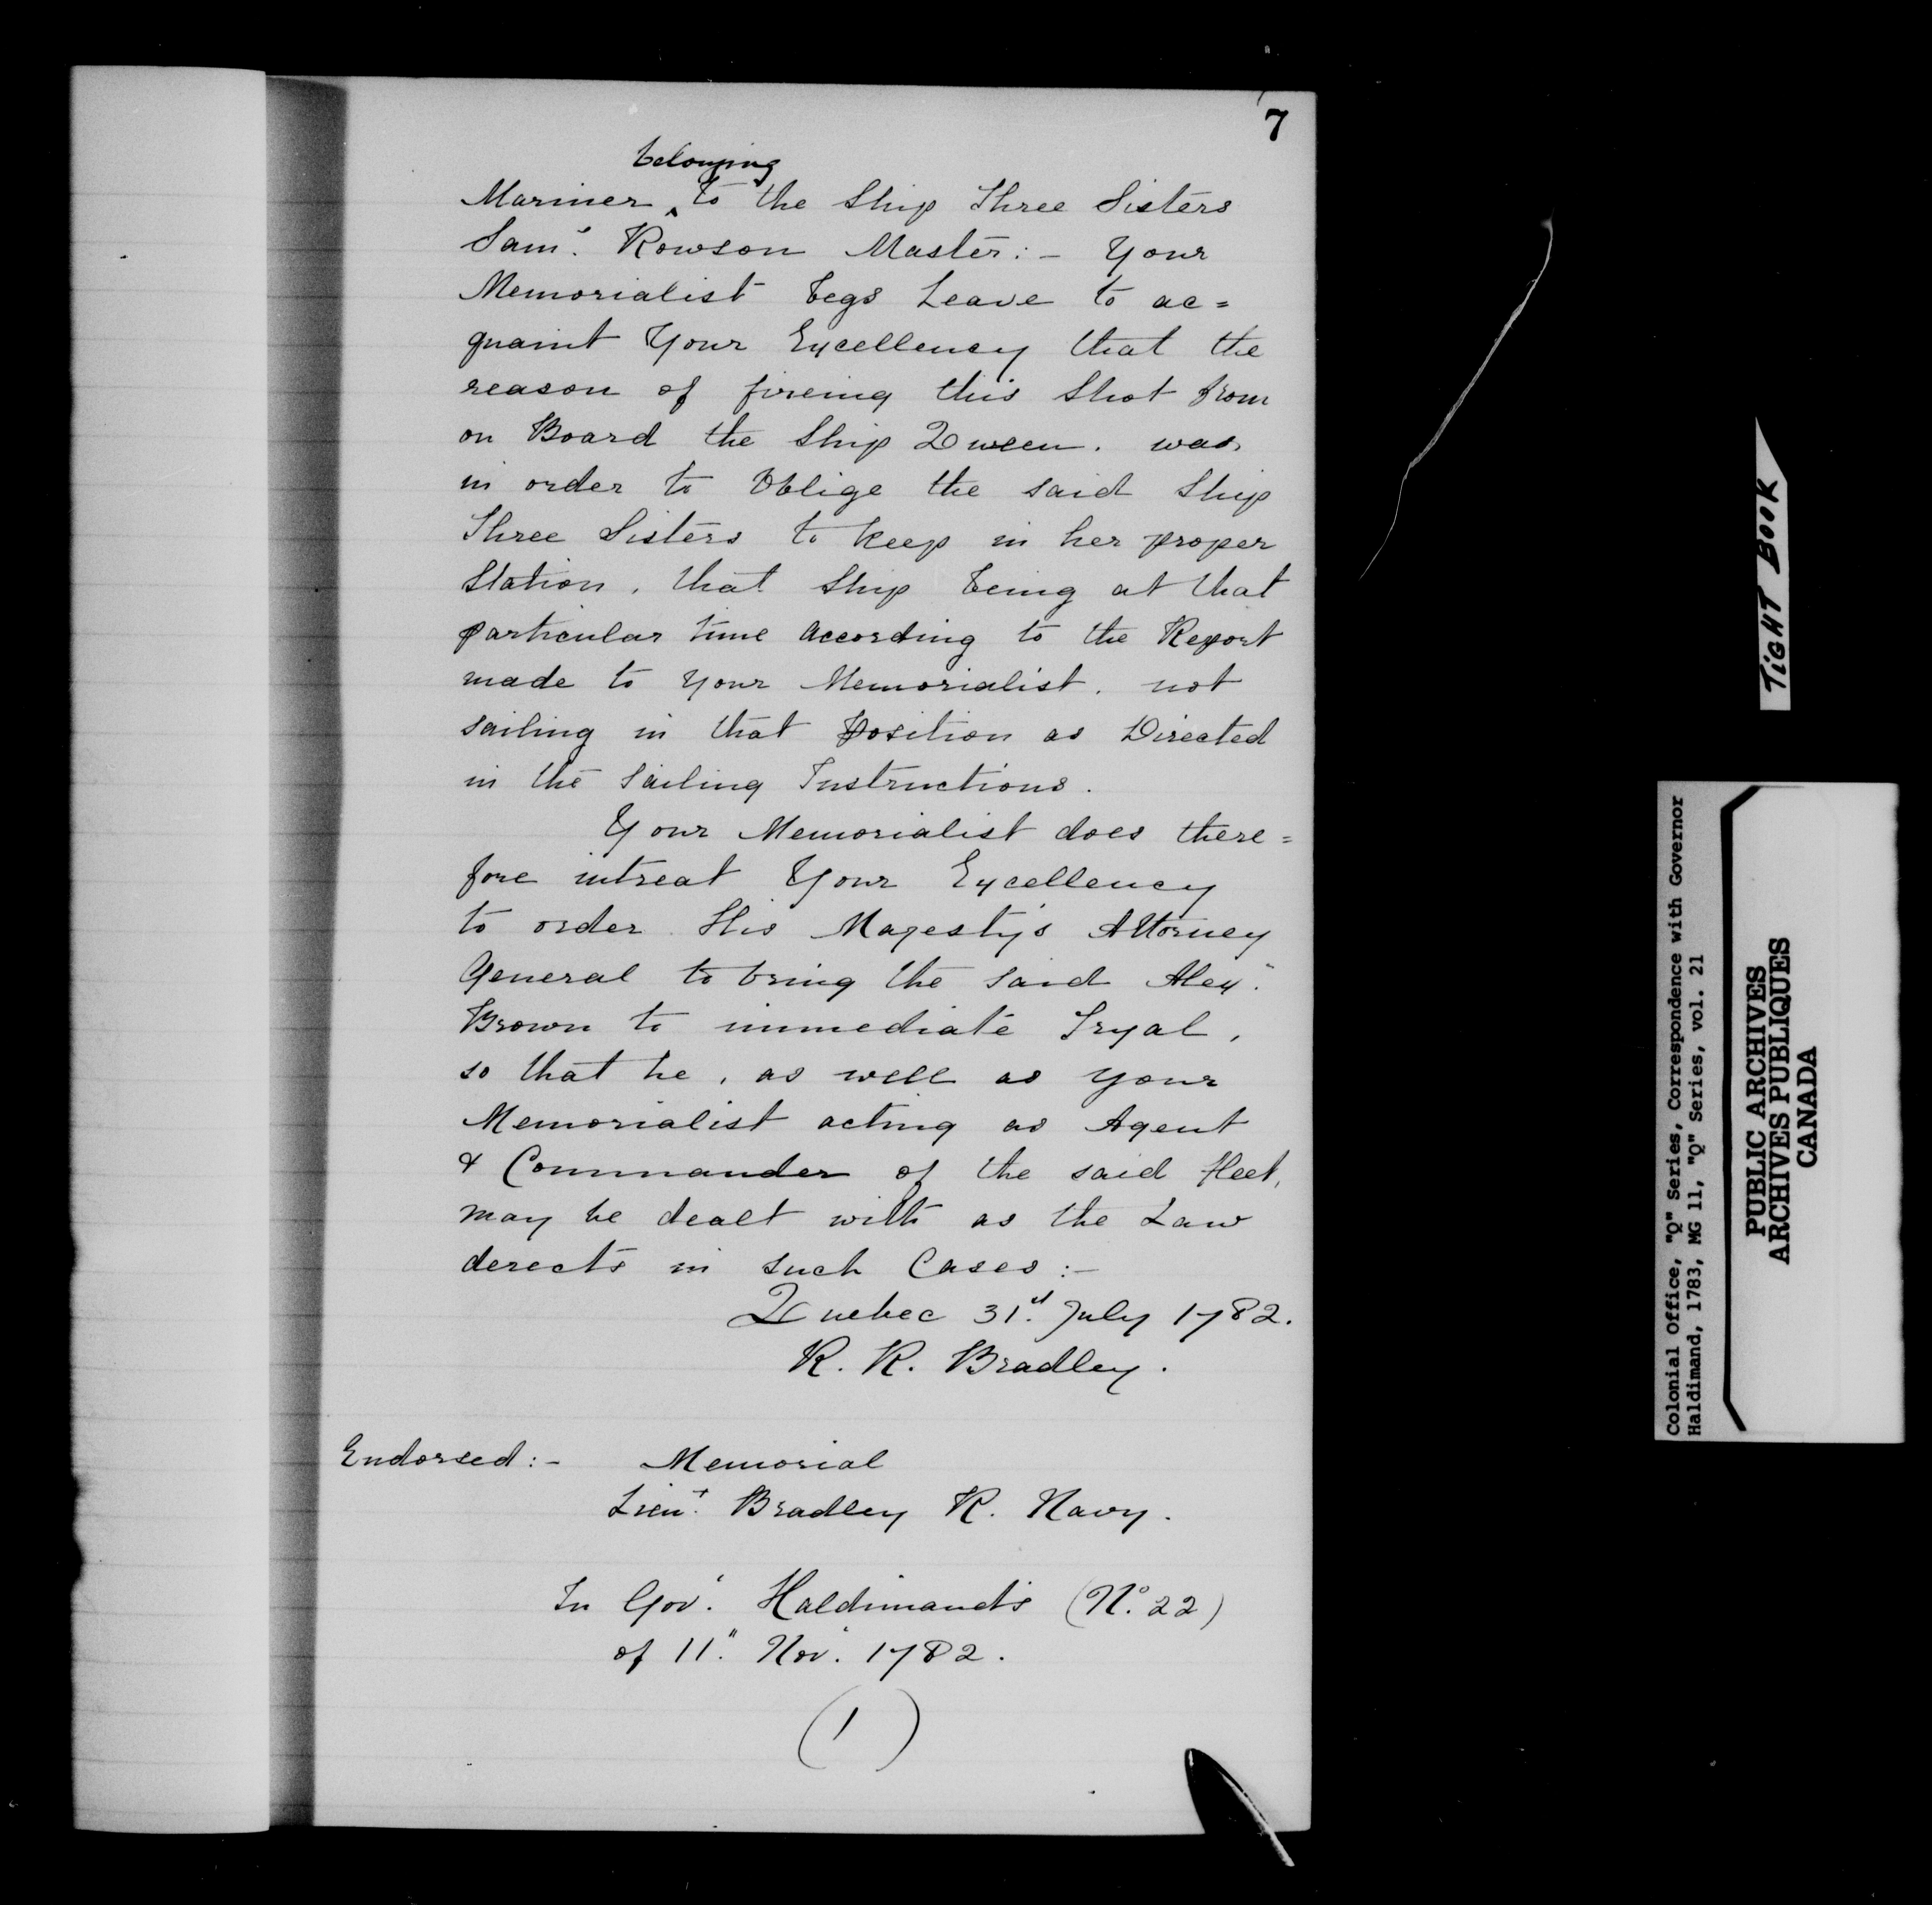 7
belonging
Mariner ‸ to the Ship Three Sisters
Sam.l Rowson Master:- Your
Memorialist begs Leave to ac=
quaint Your Excellency that the
reason of fireing this Shot from
on Board the Ship Queen. was
in order to Oblige the said Ship
Three Sisters to keep in her proper
Station, that Ship being at that
particular time according to the Report
made to Your Memorialist, not
sailing in that Position as Directed
in the Sailing Instructions.
Your Memorialist does there=
fore intreat Your Excellency
to order His Magesty's Attorney
General to bring the said Alex.r
Brown to immediate Tryal,
so that he, as well as your
Memorialist acting as Agent
& Commander of the said fleet,
may be dealt with as the Law
derects in such Cases:-
Quebec 31.st July 1782.
R. R. Bradley.
Endorsed:- Memorial
Lieu.t Bradley R. Navy.
In Gov.r Haldimand's (No. 22)
of 11.th Nov.r 1782.
(1)
TIGHT BOOK
Colonial Office, "Q" Series, Correspondence with Governor
Haldimand, 1783, MG 11, "Q" Series, vol. 21
PUBLIC ARCHIVES
ARCHIVES PUBLIQUES
CANADA